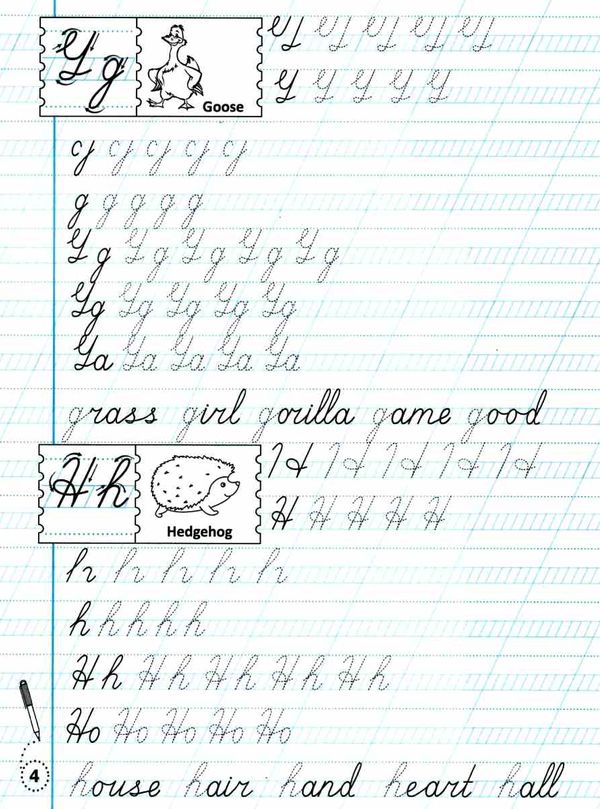 G g
Goose
G G G G G
g g g g g
G g G g G g G g G g
Gg Gg Gg Gg Gg
Ga Ga Ga Ga Ga
grass girl gorilla game good
H h
Hedgehog
H H H H H
h h h h h
H h H h H h H h H h
Ho Ho Ho Ho Ho
4
house hair hand heart hall